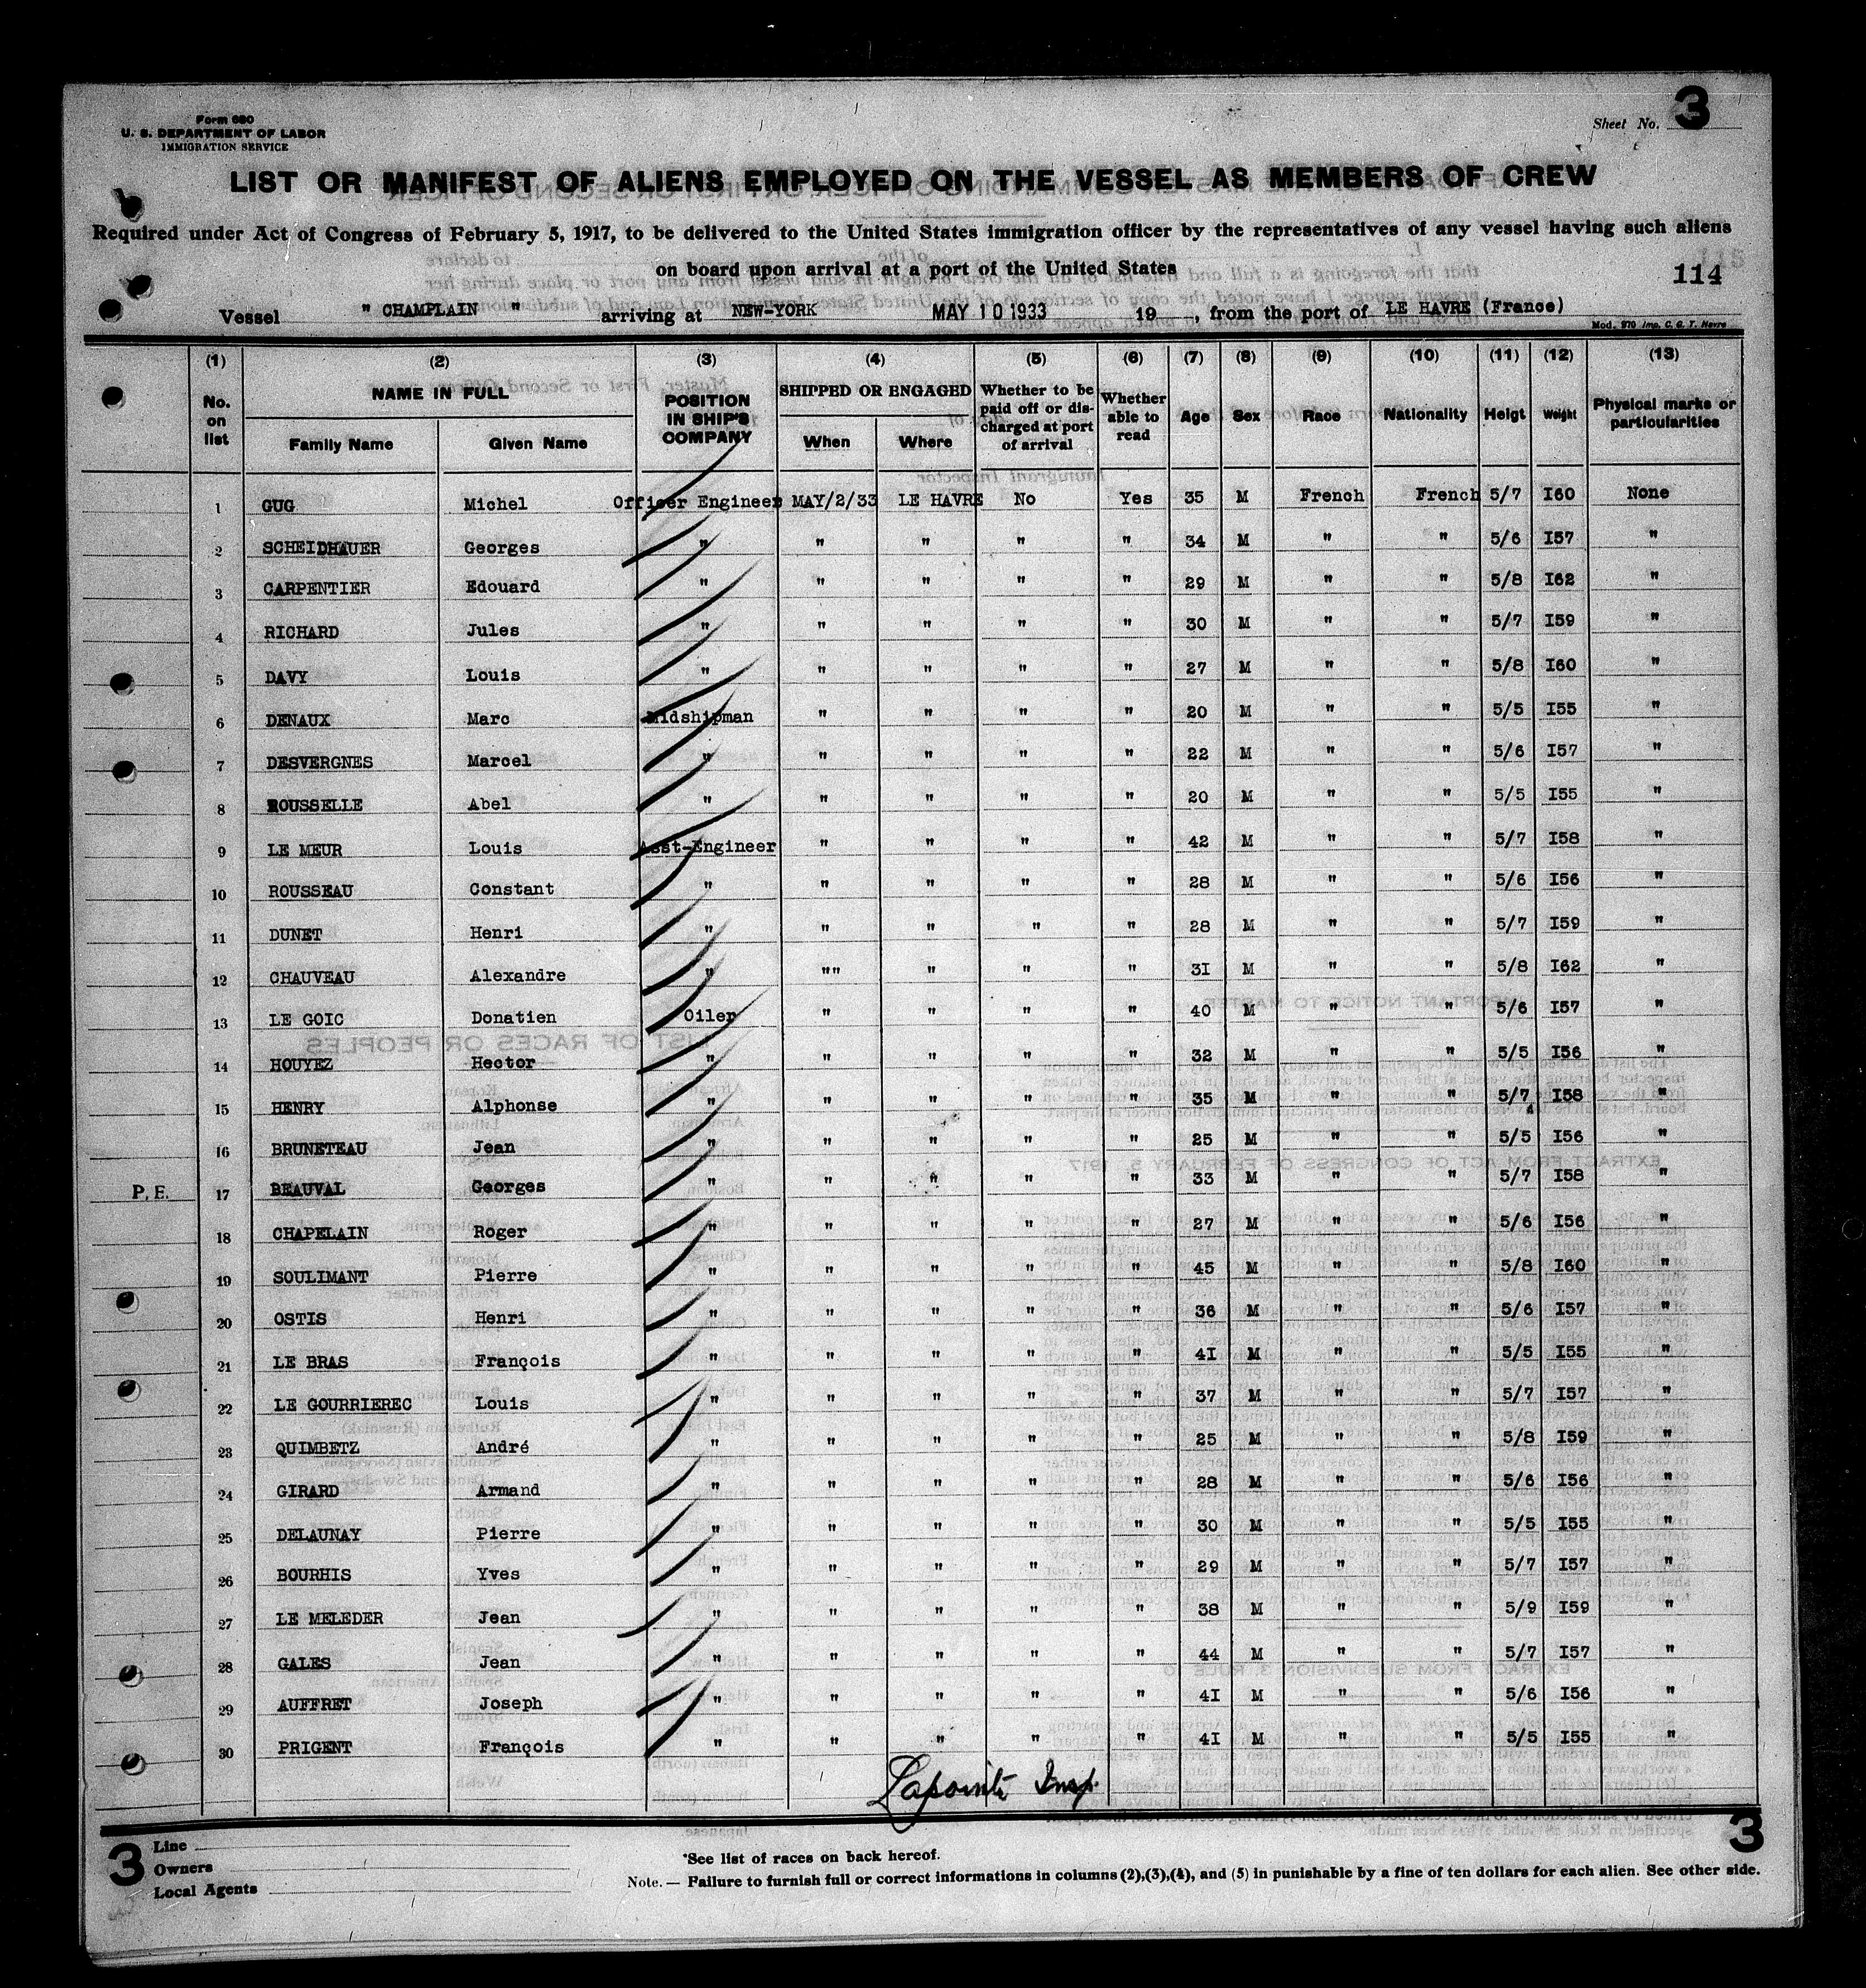 Form 680
U. S. DEPARTMENT OF LABOR
IMMIGRATION SERVICE
Sheet No. 3
LIST OR MANIFEST OF ALIENS EMPLOYED ON THE VESSEL AS MEMBERS OF CREW
Required under Act of Congress of February 5, 1917, to be delivered to the United States immigration officer by the representatives of any vessel having such aliens
on board upon arrival at a port of the United States
114
Vessel " CHAMPLAIN " arriving at NEW-YORK MAY 10 1933 19 , from the port of LE HAVRE (France)
Mod. 970 Imp. C. G. T. Havre
(1) (2) (3) (4) (5) (6) (7) (8) (9) (10) (11) (12) (13)
No. on list NAME IN FULL Family Name Given Name POSITION IN SHIP'S COMPANY SHIPPED OR ENGAGED When Where Whether to be paid off or discharged at port of arrival Whether able to read Age Sex Race Nationality Heigt Weight Physical marks or particularities
1 GUG Michel Officer Engineer MAY/2/33 LE HAVRE No Yes 35 M French French 5/7 I60 None
2 SCHEIDHAUER Georges " " " " " 34 M " " 5/6 I57 "
3 CARPENTIER Edouard " " " " " 29 M " " 5/8 I62 "
4 RICHARD Jules " " " " " 30 M " " 5/7 I59 "
5 DAVY Louis " " " " " 27 M " " 5/8 I60 "
6 DENAUX Marc Midshipman " " " " 20 M " " 5/5 I55 "
7 DESVERGNES Marcel " " " " " 22 M " " 5/6 I57 "
8 ROUSSELLE Abel " " " " " 20 M " " 5/5 I55 "
9 LE MEUR Louis Asst-Engineer " " " " 42 M " " 5/7 I58 "
10 ROUSSEAU Constant " " " " " 28 M " " 5/6 I56 "
11 DUNET Henri " " " " " 28 M " " 5/7 I59 "
12 CHAUVEAU Alexandre " "" " " " 3I M " " 5/8 I62 "
13 LE GOIC Donatien Oiler " " " " 40 M " " 5/6 I57 "
14 HOUYEZ Hector " " " " " 32 M " " 5/5 I56 "
15 HENRY Alphonse " " " " " 35 M " " 5/7 I58 "
16 BRUNETEAU Jean " " " " " 25 M " " 5/5 I56 "
P. E. 17 BEAUVAL Georges " " " " " 33 M " " 5/7 I58 "
18 CHAPELAIN Roger " " " " " 27 M " " 5/6 I56 "
19 SOULIMANT Pierre " " " " " 45 M " " 5/8 I60 "
20 OSTIS Henri " " " " " 36 M " " 5/6 I57 "
21 LE BRAS François " " " " " 4I M " " 5/5 I55 "
22 LE GOURRIEREC Louis " " " " " 37 M " " 5/7 I57 "
23 QUIMBETZ André " " " " " 25 M " " 5/8 I59 "
24 GIRARD Armand " " " " " 28 M " " 5/6 I56 "
25 DELAUNAY Pierre " " " " " 30 M " " 5/5 I55 "
26 BOURHIS Yves " " " " " 29 M " " 5/7 I57 "
27 LE MELEDER Jean " " " " " 38 M " " 5/9 I59 "
28 GALES Jean " " " " " 44 M " " 5/7 I57 "
29 AUFFRET Joseph " " " " " 4I M " " 5/6 I56 "
30 PRIGENT François " " " " " 4I M " " 5/5 I55 "
Lapointe Insp.
3 Line 3
Owners
Local Agents
*See list of races on back hereof.
Note. — Failure to furnish full or correct informations in columns (2),(3),(4), and (5) in punishable by a fine of ten dollars for each alien. See other side.